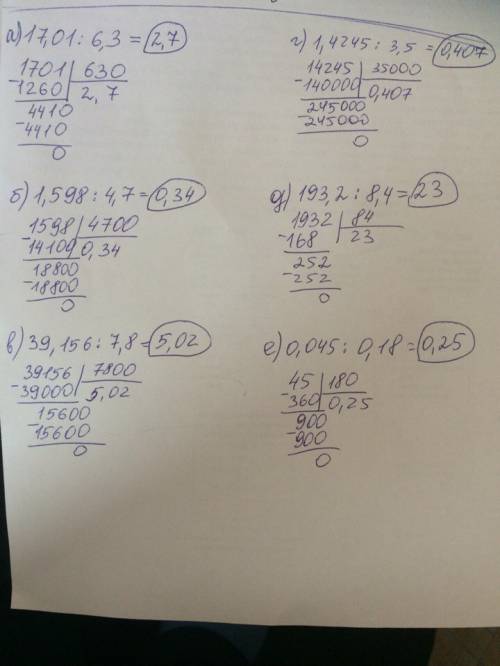 а) 17,01 : 6,3 = 2,7
1701 | 630
- 1260 | 2,7
4410
- 4410
0
б) 1,598 : 4,7 = 0,34
1598 | 4700
- 14100 | 0,34
18800
- 18800
0
в) 39,156 : 7,8 = 5,02
39156 | 7800
- 39000 | 5,02
15600
- 15600
0
г) 1,4245 : 3,5 = 0,407
14245 | 35000
- 140000 | 0,407
245000
- 245000
0
д) 193,2 : 8,4 = 23
1932 | 84
- 168 | 23
252
- 252
0
е) 0,045 : 0,18 = 0,25
45 | 180
- 360 | 0,25
900
- 900
0